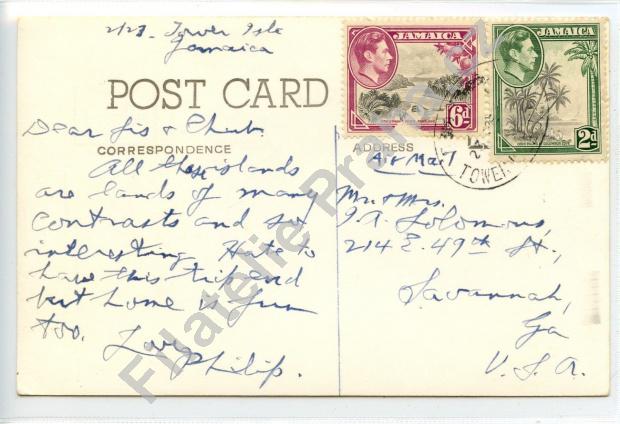 2/27. Tower Isle
Jamaica
POST CARD
Dear Sis &
CORRESPONDENCE
All these islands
are lands of many
contrasts and so
interesting. Hate to
have this trip end
but home is fun
too. Love
Philip.
JAMAICA
6d
JAMAICA
2d
TOWER
ADDRESS
Air Mail
Mr. & Mrs.
Solomons,
214 E. 49th St.,
Savannah,
Ga
U.S.A.
Filatelie Praha